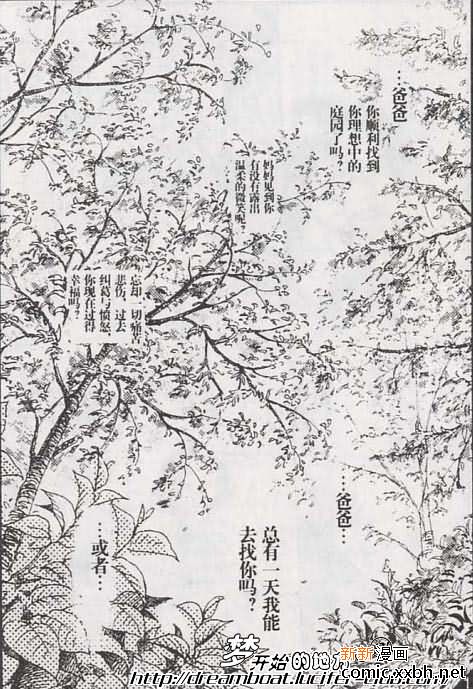 …爸爸
你顺利找到
你理想中的
庭园了吗？
妈妈见到你
有没有露出
温柔的微笑呢？
忘却一切痛苦
悲伤、过去
纠葛与愤怒，
你现在过得
幸福吗？
…爸爸…
总有一天我能
去找你吗？
…或者…
梦开始的地方
新新漫画
comic.xxbh.net